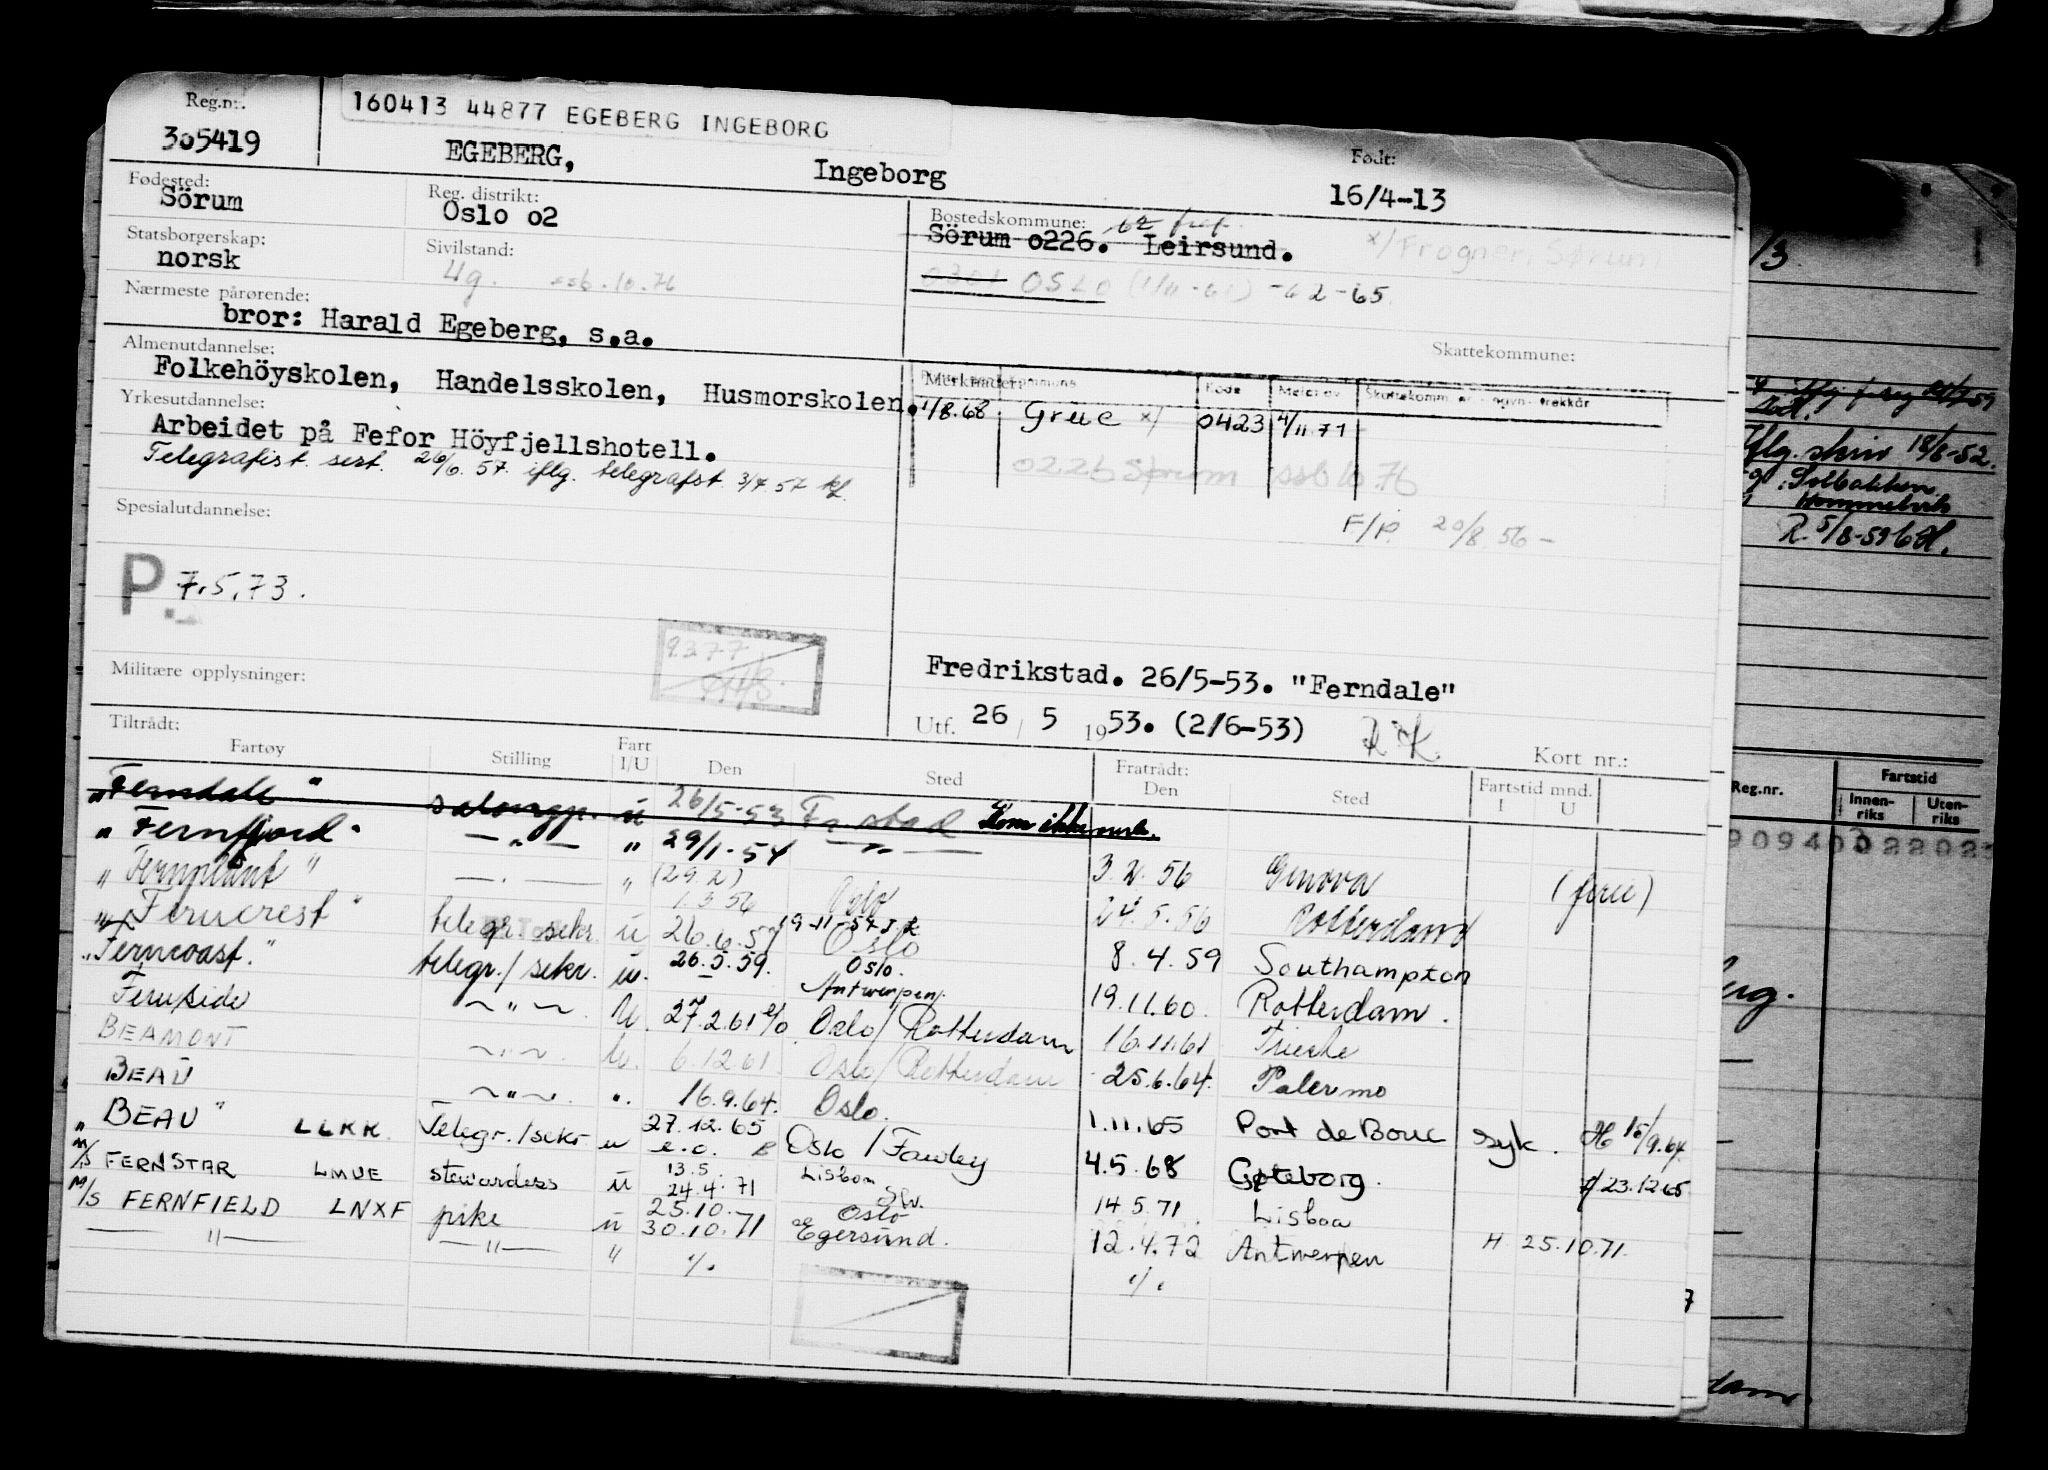 Reg.nr. 305419
160413 44877 EGEBERG INGEBORG
EGEBERG, Ingeborg
Født: 16/4-13
Fødested: Sörum
Reg. distrikt: Oslo 02
Bostedskommune: Sörum 0226. Leirsund.
x/ Frogner, Sørum
Statsborgerskap: norsk
Sivilstand: Ug. ssb. 10.76
0301 OSLO (1/11-61) -62-65
Nærmeste pårørende:
bror: Harald Egeberg, s.a.
Skattekommune:
Almenutdannelse:
Folkehöyskolen, Handelsskolen, Husmorskolen.
Merknader:
Kode
1/8.68 Grue x/ 0423 4/11 71
0226 Sørum ssb 10.76
Yrkesutdannelse:
Arbeidet på Fefor Höyfjellshotell.
Telegrafist sert. 26/6.57 iflg. telegrafst. 3/7.57
F/P. 20/8 56 -
Spesialutdannelse:
P. 7.5.73.
9377
Militære opplysninger:
Fredrikstad. 26/5-53. "Ferndale"
Utf. 26 / 5 1953. (2/6-53)
Kort nr.:
Tiltrådt:
Fartøy Stilling Fart I/U Den Sted Fratrådt: Den Sted Fartstid mnd. I U
"Ferndale" salongp. u 26/5-53 Fr.stad Kom ikke
"Fernfjord" — " — " 29/1-54 — " —
3.2.56 Genova (ferie)
"Fernplant" — " — " (29.2) 1.3 56 Oslo
24.5.56 Rotterdam
"Ferncrest" telegr. sekr. u 26.6.57 Oslo
8.4.59 Southampton
"Ferncoast." telegr./sekr. u. 26.5.59. Oslo. Antwerpen.
19.11.60. Rotterdam.
Fernside ~ " ~ U. 27.2.61 Oslo/Rotterdam
16.11.61 Trieste
BEAMONT ~ " ~ U. 6.12.61 Oslo/Rotterdam
25.6.64. Palermo
BEAU ~ " ~ ". 16.9.64. Oslo.
1.11.65 Port de Bouc syk. H 15/9.64.
"BEAU" LLKK Telegr./sekr u 27.12.65 e.o. Oslo / Fawley
4.5.68 Gøteborg. 23.12 65
M/S FERNSTAR LMUE stewardess u 13.5. 24.4.71 Lisboa
14.5.71 Lisboa
M/S FERNFIELD LNXF pike u 25.10. 30.10.71 Oslo Egersund.
12.4.72 Antwerpen H 25.10.71.
— " — — " — " ·/.
·/.
/3.
Iflg. skriv 18/8-52.
Solbakken
Hommelvik
R. 5/8-59
Reg.nr.
Fartstid
Innen-riks
Uten-riks